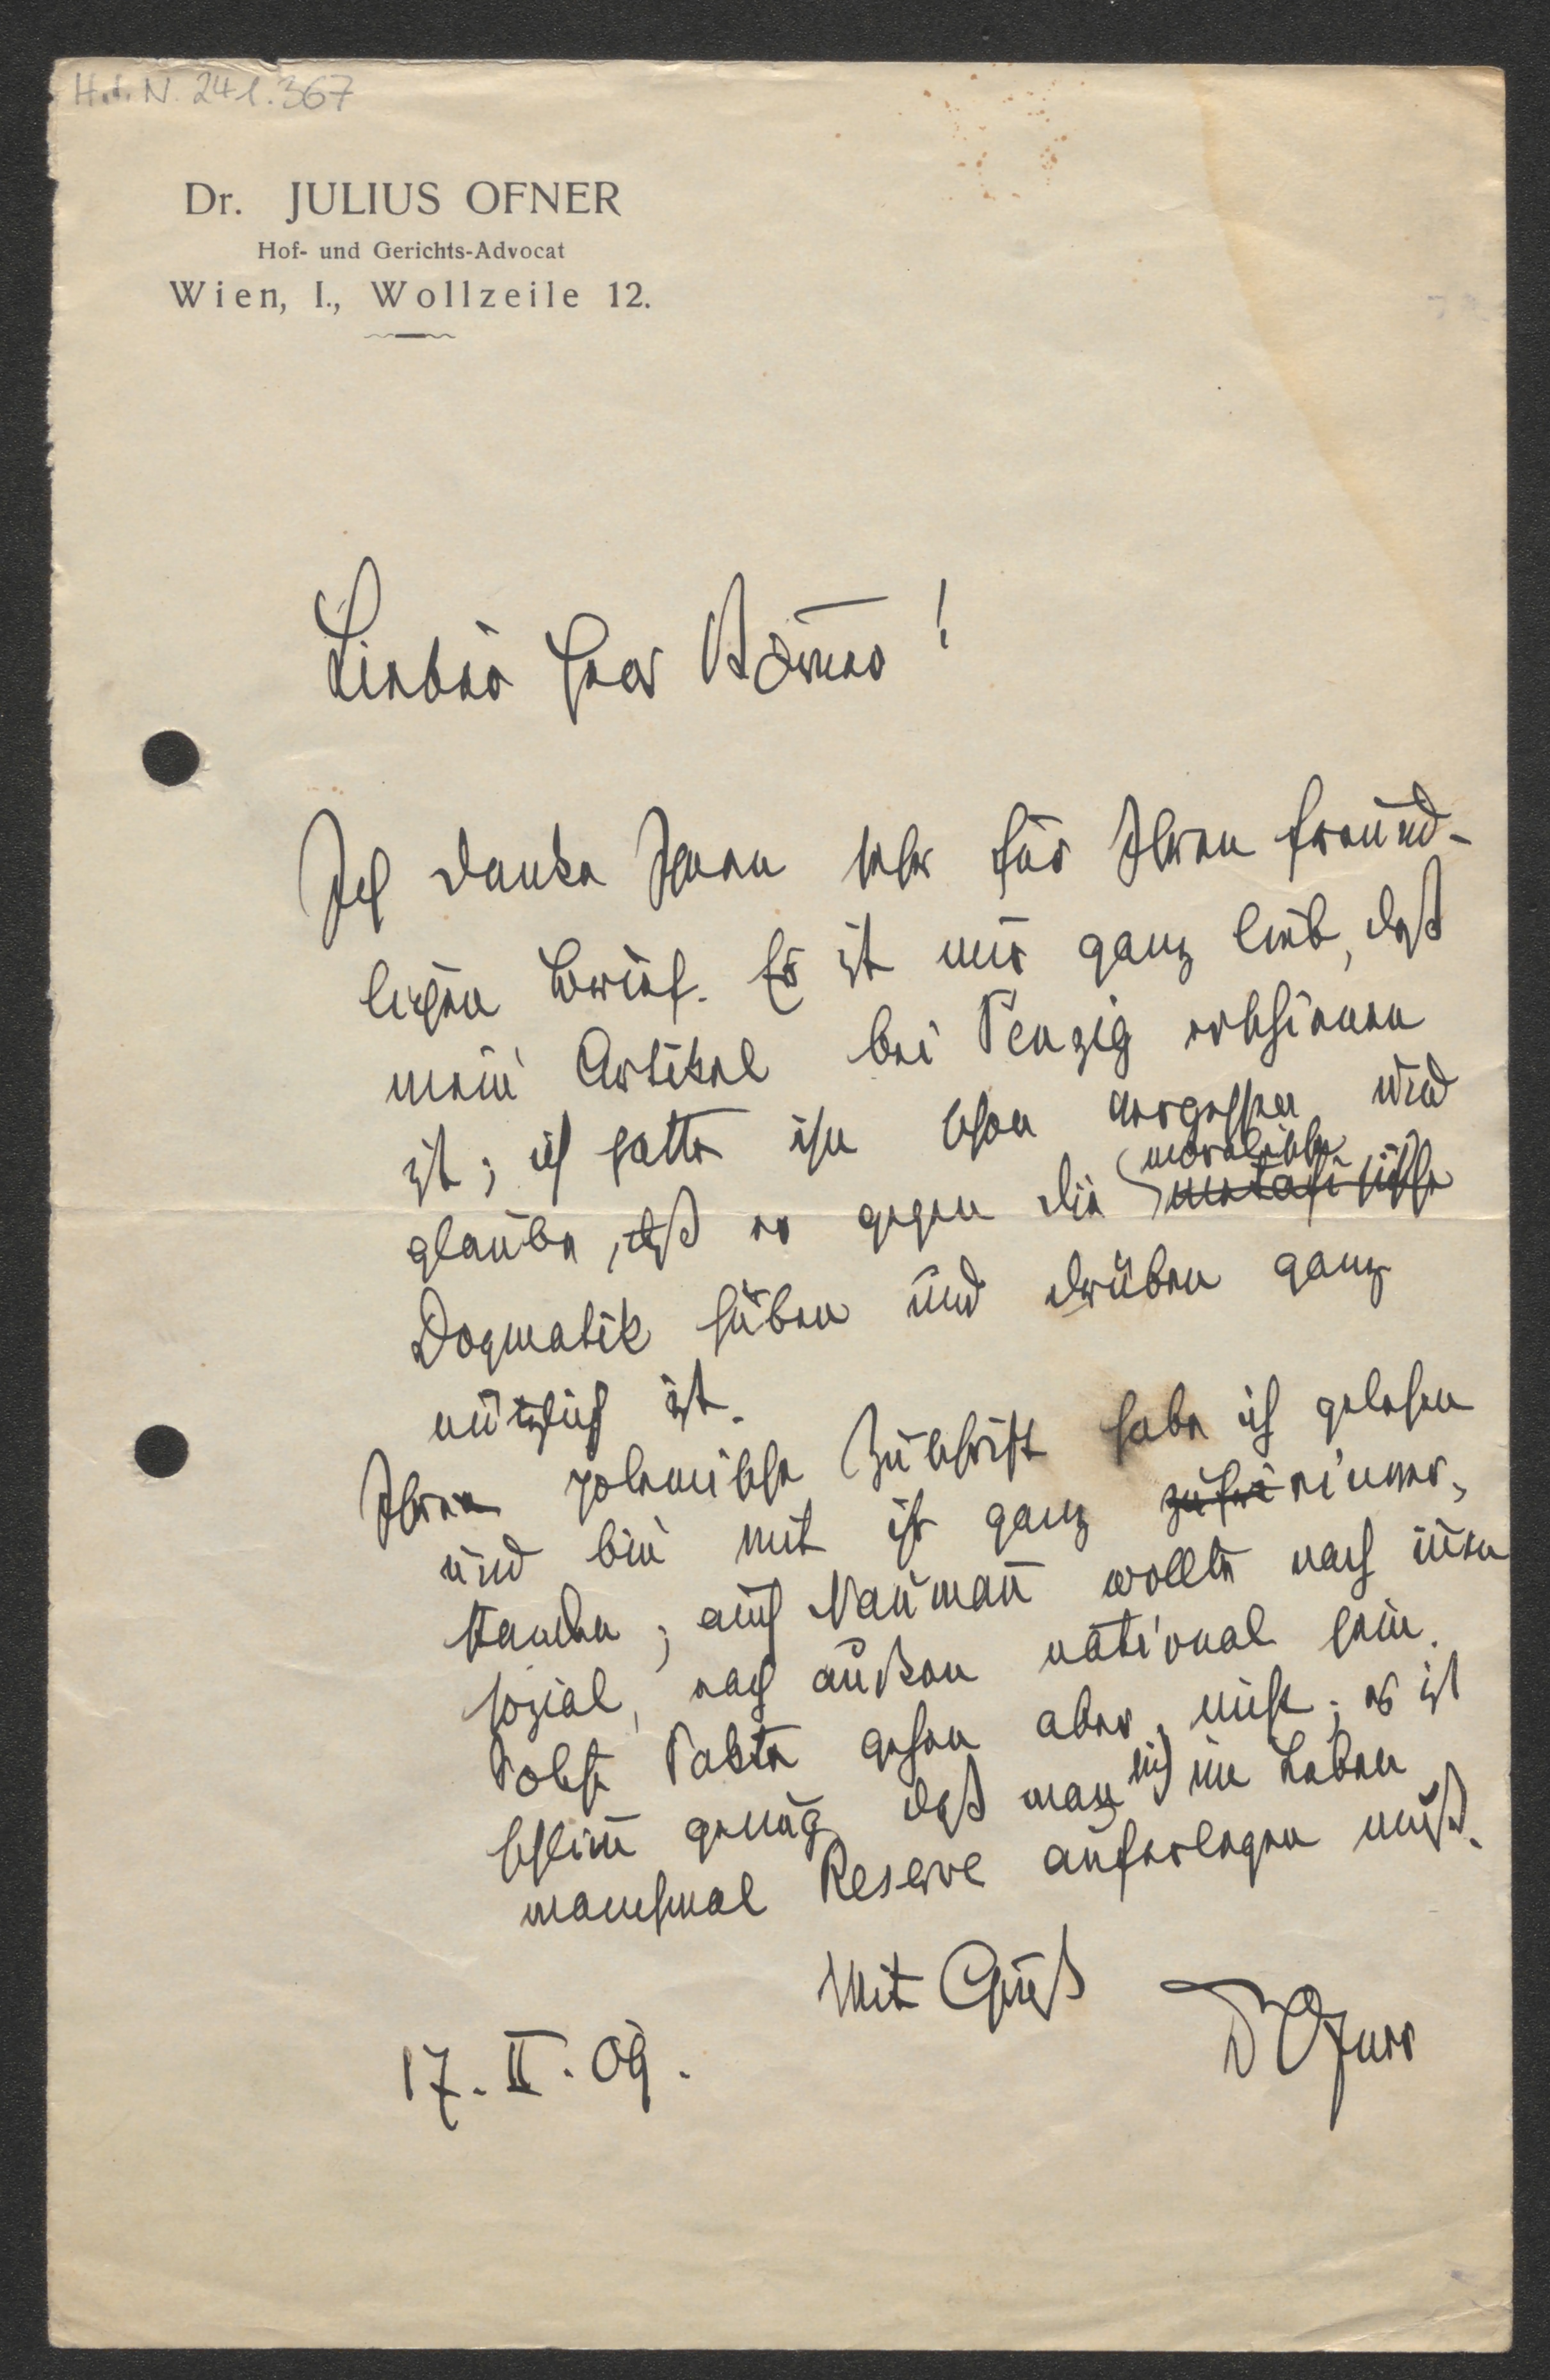 H.I.N. 241.367
Dr. JULIUS OFNER
Hof- und Gerichts-Advocat
Wien, I., Wollzeile 12.
Lieber Herr Börner!
Ich danke Ihnen sehr für Ihren freund-
lichen Brief. Es ist mir ganz lieb, daß
mein Artikel bei Penzig erschienen
ist; ich hatte ihn schon vergessen und
moralische
glaube, daß er gegen die
Dogmatik hüben und drüben ganz
nützlich ist.
Ihre polemische Zuschrift habe ich gelesen
und bin mit ihr ganz zufri einver-
standen; auch Naumann wollte nach innen
sozial, nach außen national sein.
Solche Pakte gehen aber nicht; es ist
schlimm genug daß man sich im Leben
manchmal Reserve auferlegen muß.
Mit Gruß
DOfner
17. II. 09.